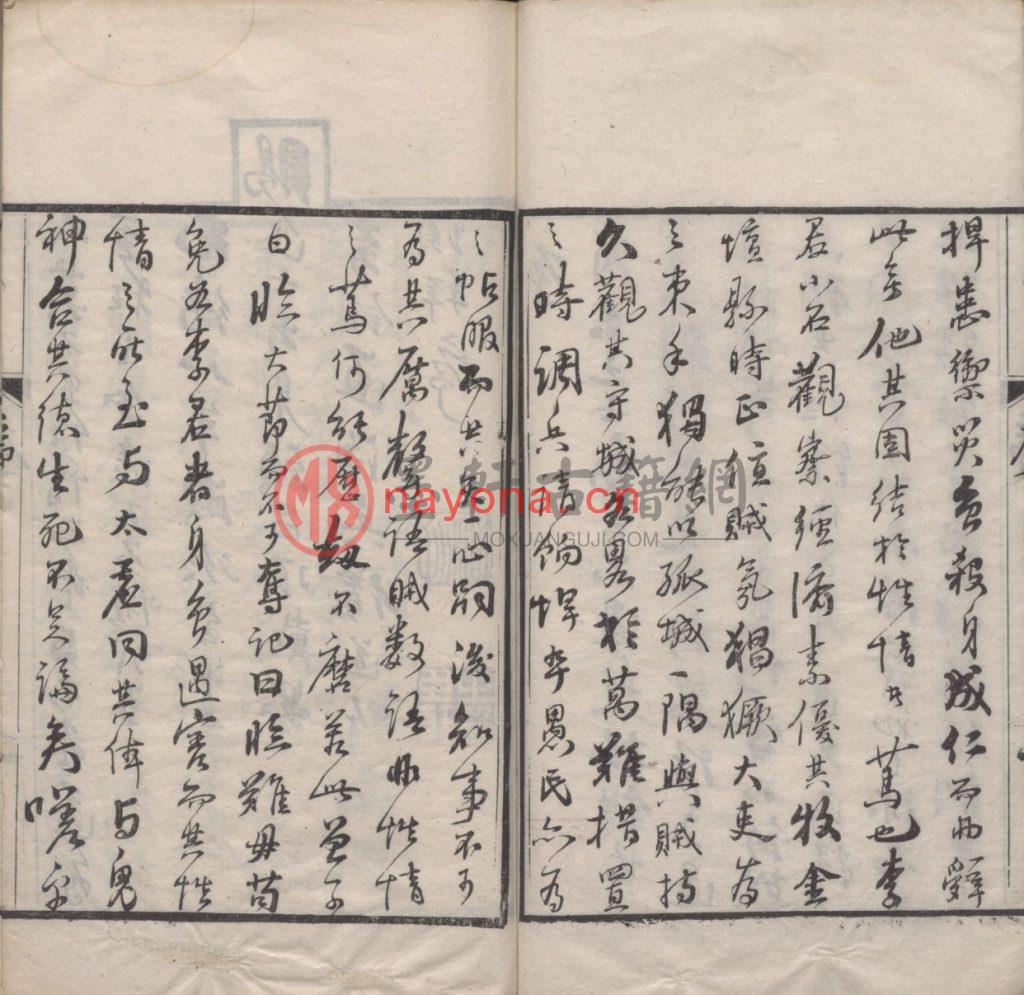 捍患禦災至殺身成仁而毋辭
此無他其固結於性情者篤也李
君小石觀察經濟素優其牧金
壇縣時正值賊氛猖獗大吏為
之束手獨能以孤城一隅與賊持
久觀其守城方畧於萬難措置
之時調兵責餉悍卒愚民亦為
之帖服而共矢一心嗣後知事不可
為其厲聲語賊數語非性情
之篤何能歷劫不磨若此曾子
曰臨大節而不可奪記曰臨難毋苟
免若李君者身雖遇害而其性
情之所至與太虛同其體與鬼
神合其德生死不足論矣嗟乎
賜
墨軒古籍網
nayona.cn
MOXUANGUJI.COM